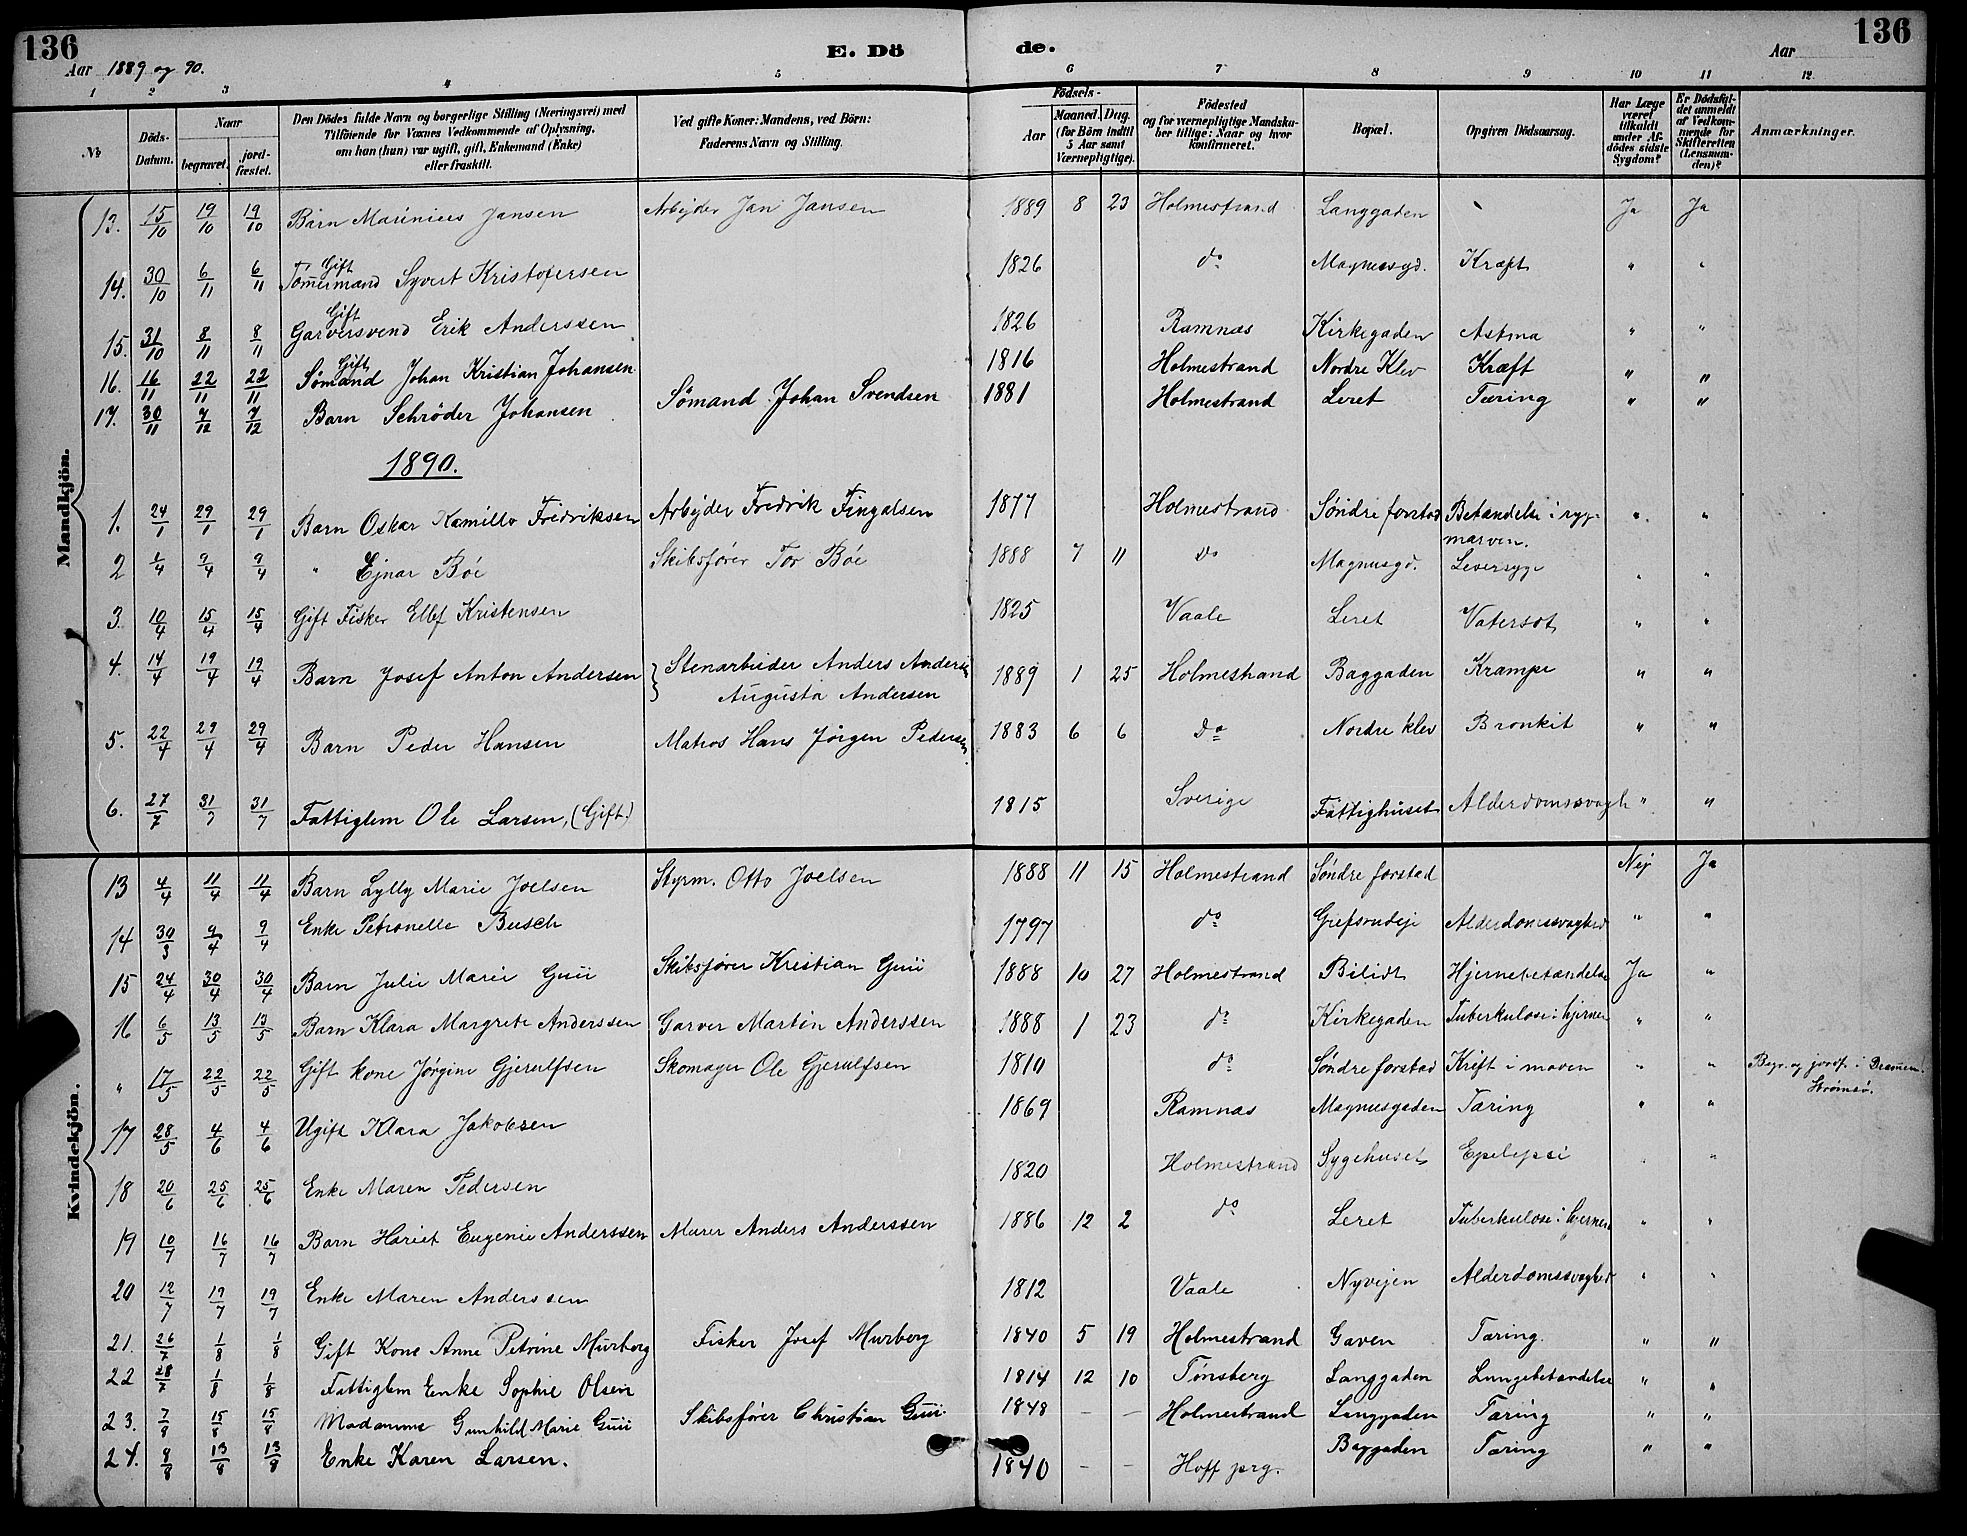 136
E. Dö
de.
136
Aar 1889 og 90.
Aar
1 2 3 4 5 6 7 8 9 10 11 12
№
Döds-Datum.
Naar
begravet.
jordfæstet.
Den Dödes fulde Navn og borgerlige Stilling (Næringsvei) med
Tilföiende for Voxnes Vedkommende af Oplysning,
om han (hun) var ugift, gift, Enkemand (Enke)
eller fraskilt.
Ved gifte Koner: Mandens, ved Börn:
Faderens Navn og Stilling.
Födsels-
Aar
Maaned. Dag.
(for Börn indtil
5 Aar samt
Værnepligtige).
Födested
og for værnepligtige Mandska-
ber tillige: Naar og hvor
konfirmeret.
Bopæl.
Opgiven Dödsaarsag.
Har Læge
været
tilkaldt
under Af-
dödes sidste
Sygdom?
Er Dödsfal-
det anmeldt
af Vedkom-
mende for
Skifteretten
(Lensman-
den)?
Anmærkninger.
Mandkjön.
13. 15/10 19/10 19/10 Barn Marinius Jansen Arbejder Jan Jansen 1889 8 23 Holmestrand Langgaden Ja Ja
14. 30/10 6/11 6/11 Gift Tømmermand Syvert Kristofersen 1826 do Magnusgd. Kræft " "
15. 31/10 8/11 8/11 Gift Garversvend Erik Anderssen 1826 Ramnæs Kirkegaden Astma " "
16. 16/11 22/11 22/11 Gift Sømand Johan Kristian Johansen 1816 Holmestrand Nordre Klev Kræft " "
17. 30/11 7/12 7/12 Barn Schrøder Johansen Sømand Johan Svendsen 1881 Holmestrand Leret Tæring " "
1890.
1. 24/1 29/1 29/1 Barn Oskar Kamillo Fredriksen Arbejder Fredrik Fingalsen 1877 Holmestrand Søndre forstad Betændelse i ryg-
marven. " "
2 1/4 9/4 9/4 " Ejnar Böe Skibsfører Tor Böe 1888 7 11 do Magnusgd. Leversyge " "
3. 10/4 15/4 15/4 Gift Fisker Ellef Kristensen 1825 Vaale Leret Vatersot " "
4. 14/4 19/4 19/4 Barn Josef Anton Andersen } Stenarbeider Anders Anders
Augusta Andersen 1889 1 25 Holmestrand Baggaden Krampe " "
5. 22/4 29/4 29/4 Barn Peder Hansen Matros Hans Jørgen Pedersen 1883 6 6 Do Nordre klev Bronkit " "
6. 27/7 31/7 31/7 Fattiglem Ole Larsen, (Gift.) 1815 Sverige Fattighuset Alderdomssvagh " "
Kvindekjön.
13 4/4 11/4 11/4 Barn Lylly Marie Joelsen Styrm. Otto Joelsen 1888 11 15 Holmestrand Søndre forstad Nej Ja
14 30/3 9/4 9/4 Enke Petronelle Busch 1797 do Alderdomssvaghed " "
15 24/4 30/4 30/4 Barn Julie Marie Guii Skibsfører Kristian Guii 1888 10 27 Holmestrand Bilidt Hjernebetændelse Ja "
16 6/5 13/5 13/5 Barn Klara Margrete Anderssen Garver Martin Anderssen 1888 1 23 do Kirkegaden Tuberkulose i hjernen " "
" 17/5 22/5 22/5 Gift kone Jørgine Gjerulfsen Skomager Ole Gjerulfsen 1810 do Søndre forstad Kræft i maven " " Begr. og jordf. i Drammen.
Strømsö.
17 28/5 4/6 4/6 Ugift Klara Jakobsen 1869 Ramnæs Magnusgaden Tæring " "
18 20/6 25/6 25/6 Enke Maren Pedersen 1820 Holmestrand Sygehuset Epelepsi " "
19 10/7 16/7 16/7 Barn Hariet Eugenie Anderssen Murer Anders Anderssen 1886 12 2 do Leret Tuberkulose i hjernen " "
20 12/7 19/7 19/7 Enke Maren Anderssen 1812 Vaale Nyvejen Alderdomssvaghed " "
21. 26/7 1/8 1/8 Gift Kone Anne Petrine Murberg Fisker Josef Murberg 1840 5 19 Holmestrand Gaven Tæring. " "
22 28/7 1/8 1/8 Fattiglem Enke Sophie Olsen 1814 12 10 Tønsberg Langgaden Lungebetændelse " "
23. 7/8 15/8 15/8 Madamme Gunhild Marie Guii Skibsfører Christian Guii. 1848 – – Holmestrand Langgaden Tæring " "
24. 9/8 13/8 13/8 Enke Karen Larsen. 1840 – – Hoff prg. Baggaden Tæring " "